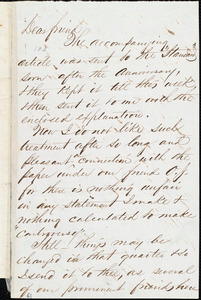 Dear friend,
The accompanying
article was sent to the Standard
soon after the Anniversary,
& they kept it till this week,
& then sent it to me with the
enclosed explanation.
Now I do not like such
treatment after so long and
pleasant connection with the
paper under our friend G,
for there is nothing unfair
in any statement I make &
nothing calculated to make
"controversy."
Still things may be
changed in that quarter & so
I send it to thee, as several
of our prominent friends here